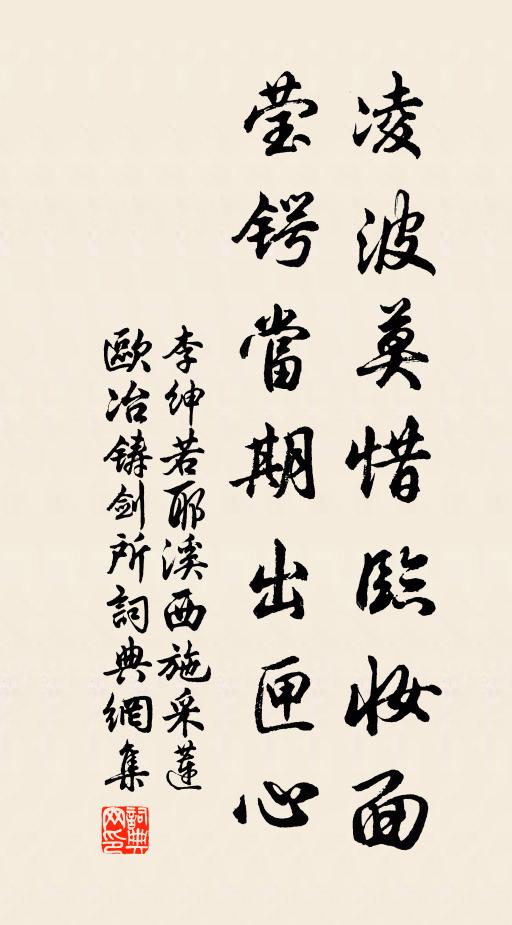 凌波莫惜临妆面
莹锷當期出匣心
李绅若耶溪西施采蓮
歐冶铸剑所詞典網集
詞典网印